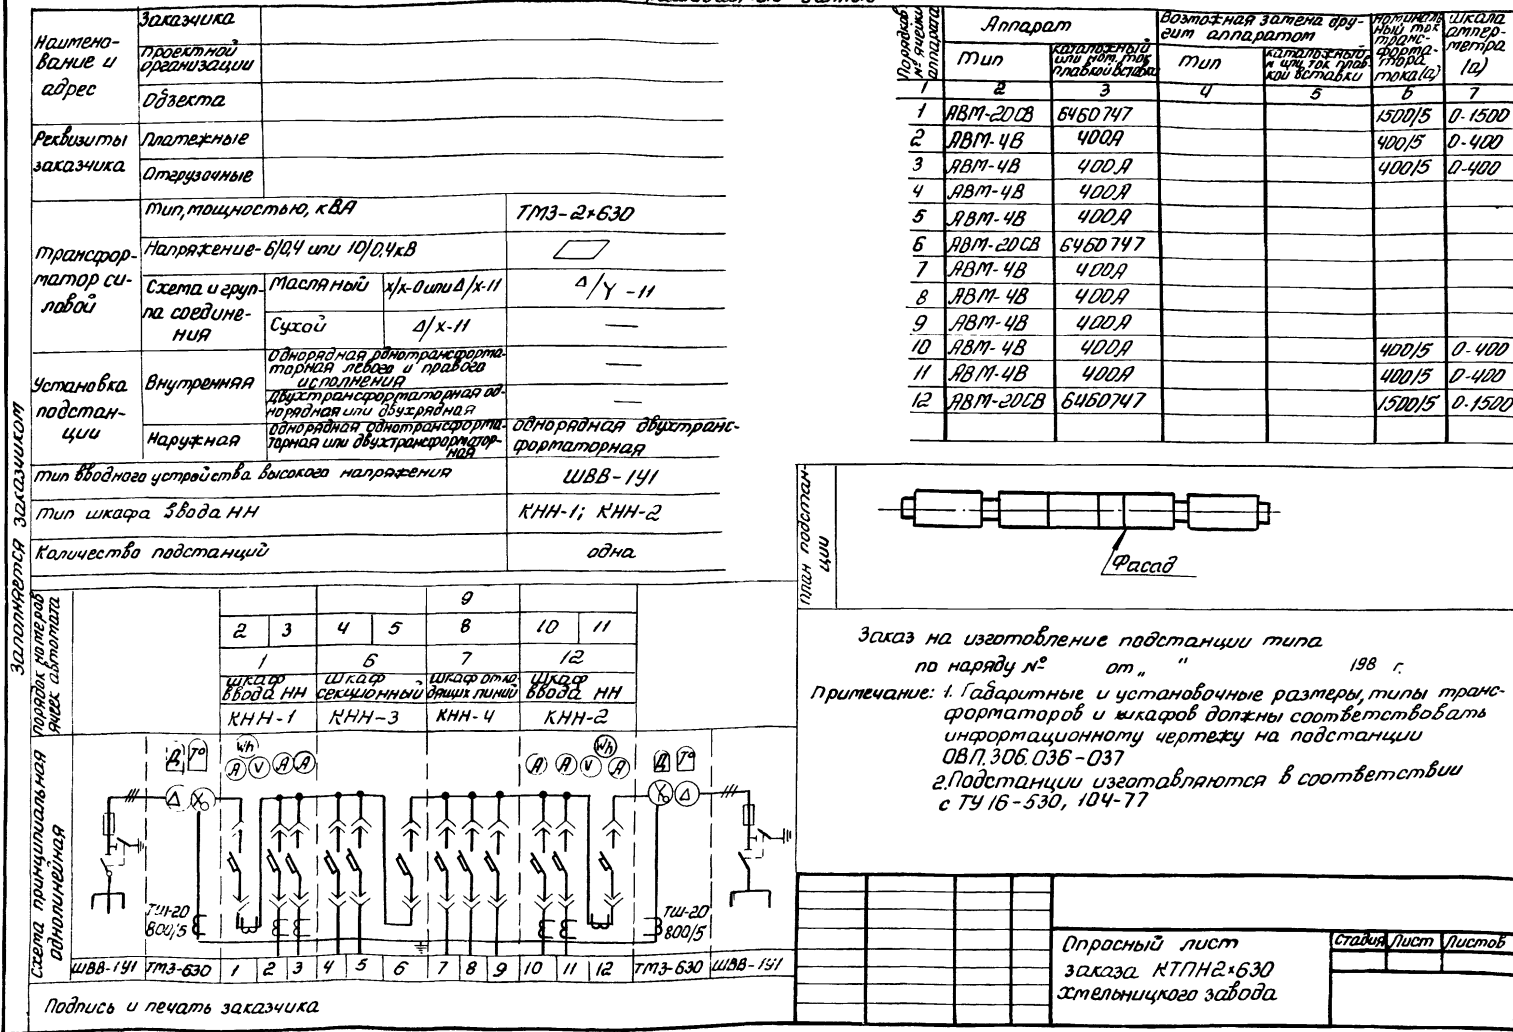 Заполняется заказчиком
Наимено-
вание и
адрес
Заказчика
проектной
организации
Объекта
Реквизиты
заказчика
Платежные
Отгрузочные
Трансфор-
матор си-
ловой
Тип, мощностью, кВА
ТМЗ-2×630
Напряжение-6/0,4 или 10/0,4кВ
Схема и груп-
па соедине-
ния
Масляный
Y/Y-0 или Δ/Y-11
Δ/Y -11
Сухой
Δ/Y-11
—
Установка
подстан-
ции
Внутренняя
Однорядная однотрансформа-
торная левого и правого
исполнения
—
Двухтрансформаторная од-
норядная или двухрядная
—
Наружная
однорядная однотрансформа-
торная или двухтрансформатор-
ная
однорядная двухтранс-
форматорная
Тип вводного устройства высокого напряжения
ШВВ-1У1
Тип шкафа ввода НН
КНН-1; КНН-2
Количество подстанций
одна
Порядок номеров
ячеек автомата
9
2 3 4 5 8 10 11
1 6 7 12
шкаф
ввода НН
шкаф
секционный
шкаф отхо-
дящих линий
шкаф
ввода НН
КНН-1 КНН-3 КНН-4 КНН-2
Схема принципиальная
однолинейная
Д T° Wh A V A A
A A V Wh A Д T°
ТШ-20
800/5
ТШ-20
800/5
ШВВ-1У1 ТМЗ-630 1 2 3 4 5 6 7 8 9 10 11 12 ТМЗ-630 ШВВ-1У1
Подпись и печать заказчика
Порядков.
№ ячейки
аппарата
Аппарат
Возможная замена дру-
гим аппаратом
Номиналь
ный ток
транс-
форма-
тора
тока(а)
Шкала
ампер-
метра
(а)
Тип
каталожный
или ном. ток
плавкой вставки
Тип
каталожный
№ или ток плав
кой вставки
1 2 3 4 5 6 7
1 АВМ-20СВ 6460747 1500/5 0-1500
2 АВМ-4В 400А 400/5 0-400
3 АВМ-4В 400А 400/5 0-400
4 АВМ-4В 400А
5 АВМ-4В 400А
6 АВМ-20СВ 6460747
7 АВМ-4В 400А
8 АВМ-4В 400А
9 АВМ-4В 400А
10 АВМ-4В 400А 400/5 0-400
11 АВМ-4В 400А 400/5 0-400
12 АВМ-20СВ 6460747 1500/5 0-1500
План подстан-
ции
Фасад
Заказ на изготовление подстанции типа
по наряду № от „ " 198 г.
Примечание: 1. Габаритные и установочные размеры, типы транс-
форматоров и шкафов должны соответствовать
информационному чертежу на подстанции
ОВП.306.036-037
2. Подстанции изготавляются в соответствии
с ТУ 16-530, 104-77
Опросный лист
заказа КТПН2×630
Хмельницкого завода
Стадия Лист Листов